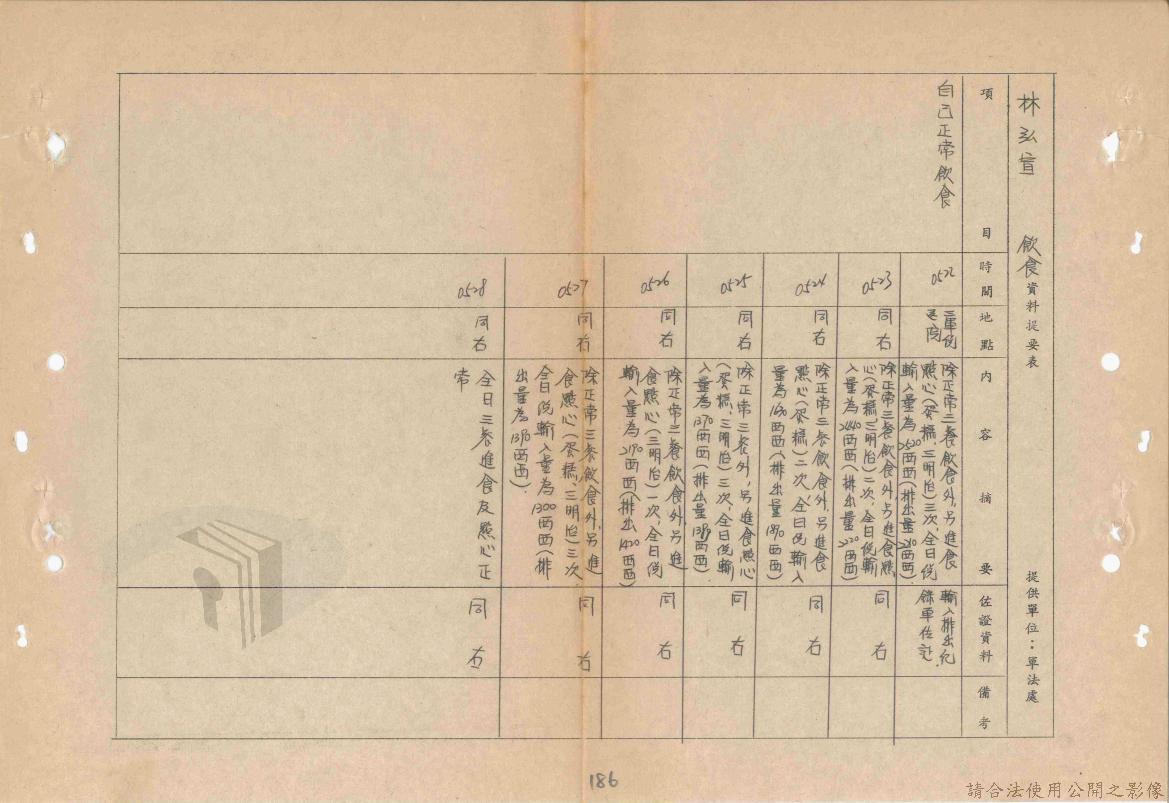 林弘宣 飲食資料提要表 提供單位：軍法處
項目
時間
地點
內容摘要
佐證資料
備考
自己正常飲食
0522
三軍總
醫院
除正常三餐飲食外，另進食
點心(蛋糕、三明治)三次，全日總
輸入量為2520西西(排出量2210西西)
輸入排出紀
錄單佐証
0523
同右
除正常三餐飲食外另進食點
心(蛋糕三明治)二次，全日總輸
入量為2440西西(排出量2220西西)
同右
0524
同右
除正常三餐飲食外，另進食
點心(蛋糕)二次，全日總輸入
量為1620西西(排出量1890西西)
同右
0525
同右
除正常三餐外，另進食點心
(蛋糕、三明治)三次，全日總輸
入量為1370西西(排出量1380西西)
同右
0526
同右
除正常三餐飲食外，另進
食點心(三明治)一次，全日總
輸入量為2190西西(排出1420西西)
同右
0527
同右
除正常三餐飲食外，另進
食點心(蛋糕、三明治)三次
全日總輸入量為1300西西(排
出量為1390西西)
同右
0528
同右
全日三餐進食及點心正
常
同右
186
請合法使用公開之影像